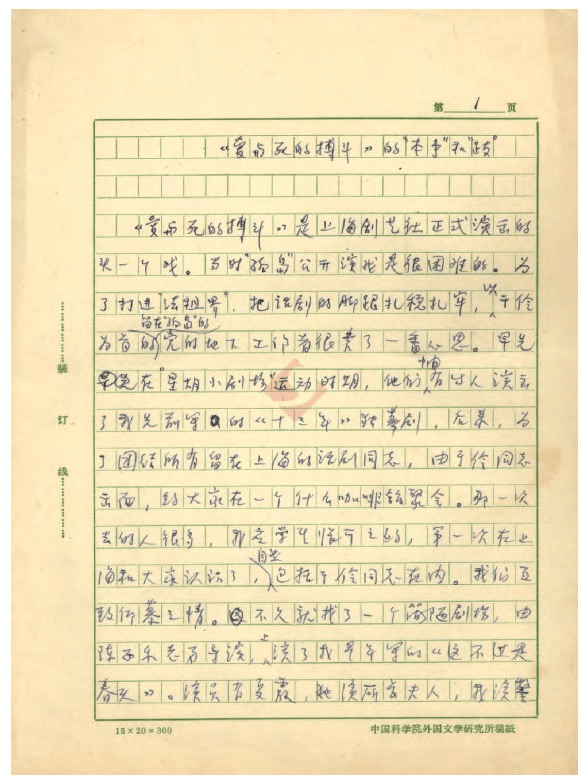 第 1 页
《爱与死的搏斗》的"本事"和"跋"
《爱与死的搏斗》是上海剧艺社正式演出的
头一个戏。当时"孤岛"公开演戏是很困难的。为
了打进"法租界",把话剧的脚跟扎稳扎牢,以于伶
留在"孤岛"的
为首的党的地下工作者很费了一番心思。早先
在"星期小剧场"运动时期,他们中间有过人演出
了我先前写的《十三年》独幕剧,后来,为
了团结所有留在上海的话剧同志,由于伶同志
出面,约大家在一个什么咖啡馆聚会。那一次
去的人很多,我
第一次在上
海和大家认识了,自然包括于伶同志在内。我们互
致仰慕之情。不久就找了一个简陋剧场,由
导演,上演了我早年写的《这不过是
春天》。演员有夏霞,她演厅长夫人,我演
装订线
15×20=300
中国科学院外国文学研究所稿纸